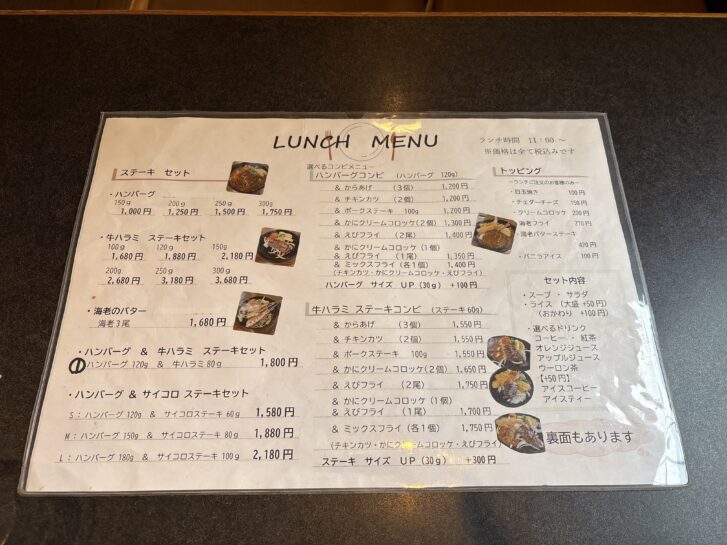 LUNCH MENU
ランチ時間 11:00 ~
※価格は全て税込みです
ステーキ セット
・ハンバーグ
150g 200g 250g 300g
1,000円 1,250円 1,500円 1,750円
・牛ハラミ ステーキセット
100g 120g 150g
1,680円 1,880円 2,180円
200g 250g 300g
2,680円 3,180円 3,680円
・海老のバター
海老3尾 1,680円
・ハンバーグ & 牛ハラミ ステーキセット
ハンバーグ 120g & 牛ハラミ 80g 1,800円
・ハンバーグ & サイコロ ステーキセット
S:ハンバーグ 120g & サイコロステーキ 60g 1,580円
M:ハンバーグ 150g & サイコロステーキ 80g 1,880円
L:ハンバーグ 180g & サイコロステーキ 100g 2,180円
選べるコンビメニュー
ハンバーグコンビ (ハンバーグ 120g)
& からあげ (3個) 1,200円
& チキンカツ (2個) 1,200円
& ポークステーキ 100g 1,200円
& かにクリームコロッケ(2個) 1,300円
& えびフライ (2尾) 1,400円
& かにクリームコロッケ (1個)
& えびフライ (1尾) 1,350円
& ミックスフライ(各1個) 1,400円
(チキンカツ・かにクリームコロッケ・えびフライ)
ハンバーグ サイズ UP(30g) +100円
牛ハラミ ステーキコンビ (ステーキ 60g)
& からあげ (3個) 1,550円
& チキンカツ (2個) 1,550円
& ポークステーキ 100g 1,550円
& かにクリームコロッケ(2個) 1,650円
& えびフライ (2尾) 1,750円
& かにクリームコロッケ(1個)
& えびフライ (1尾) 1,700円
& ミックスフライ(各1個) 1,750円
(チキンカツ・かにクリームコロッケ・えびフライ)
ステーキ サイズ UP(30g) +300円
トッピング
ーランチご注文のお客様のみー
・目玉焼き 100円
・チェダーチーズ 150円
・クリームコロッケ 200円
・海老フライ 270円
・海老バターステーキ
420円
・バニラアイス 100円
セット内容
・スープ・サラダ
・ライス (大盛 +50円)
(おかわり +100円)
・選べるドリンク
コーヒー・紅茶
オレンジジュース
アップルジュース
ウーロン茶
【+50円】
アイスコーヒー
アイスティー
裏面もあります